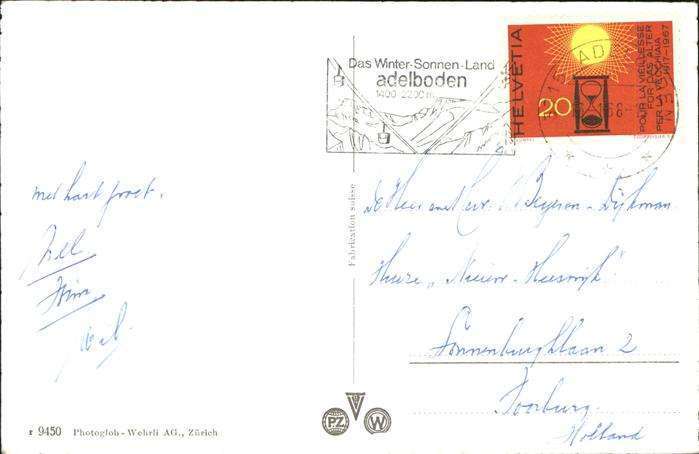 Das Winter-Sonnen-Land
adelboden
1400-2200 m
HELVETIA
20
POUR LA VIEILLESSE
FÜR DAS ALTER
PER LA VECCHIAIA
1917-1967
met hart. groet.
Wim
Fabrication suisse
De Heer en Mevr. Beyson-Dijkman
Huize „Nieuw-Heeswijk"
Sonnenburghlaan 2
Voorburg.
Holland
PZ
W
r 9450 Photoglob-Wehrli AG., Zürich